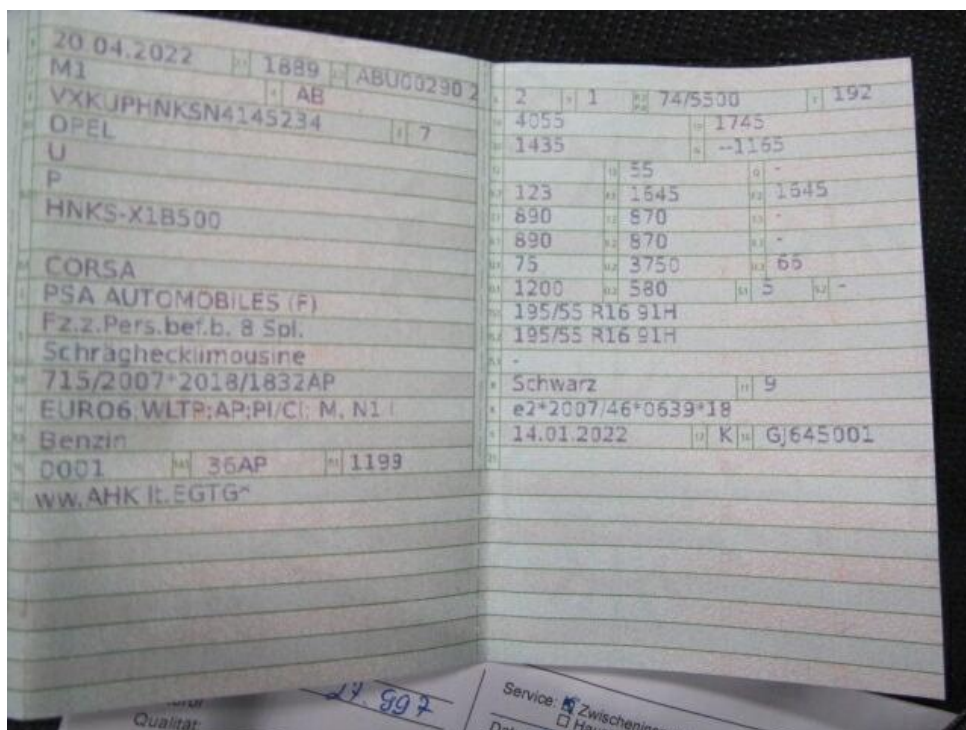 20.04.2022 1889 ABU00290 2
M1 AB
VXKUPHNKSN4145234 7
OPEL
U
P
HNKS-X1B500
CORSA
PSA AUTOMOBILES (F)
Fz.z.Pers.bef.b. 8 Spl.
Schräghecklimousine
715/2007*2018/1832AP
EURO6;WLTP;AP;PI/CI; M, N1 I
Benzin
0001 36AP 1199
ww.AHK lt.EGTG*
2 1 74/5500 192
4055 1745
1435 --1165
55 -
123 1645 1645
890 870 -
890 870 -
75 3750 66
1200 580 5 -
195/55 R16 91H
195/55 R16 91H
-
Schwarz 9
e2*2007/46*0639*18
14.01.2022 K GJ645001
27.997
Service: Zwischenin
Qualität: